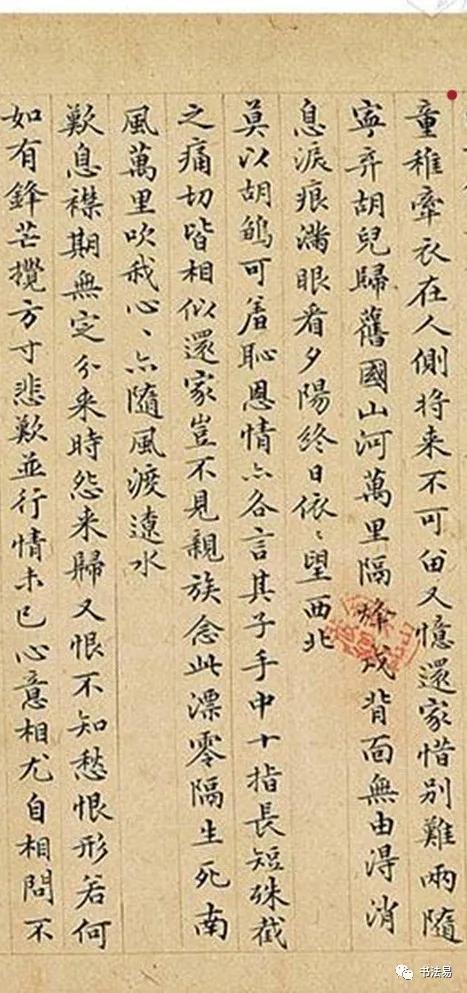 童稚牽衣在人側将来不可留又憶還家惜別難兩隨
寧弃胡兒歸舊國山河萬里隔烽戍背面無由得消
息淚痕滿眼看夕陽終日依〻望西北
莫以胡鶵可羞恥恩情亦各言其子手中十指長短殊截
之痛切皆相似還家豈不見親族念此漂零隔生死南
風萬里吹我心〻亦隨風渡遼水
歎息襟期無定分来時怨来歸又恨不知愁恨形若何
如有鋒芒攪方寸悲歎並行情未已心意相尤自相問不
书法易